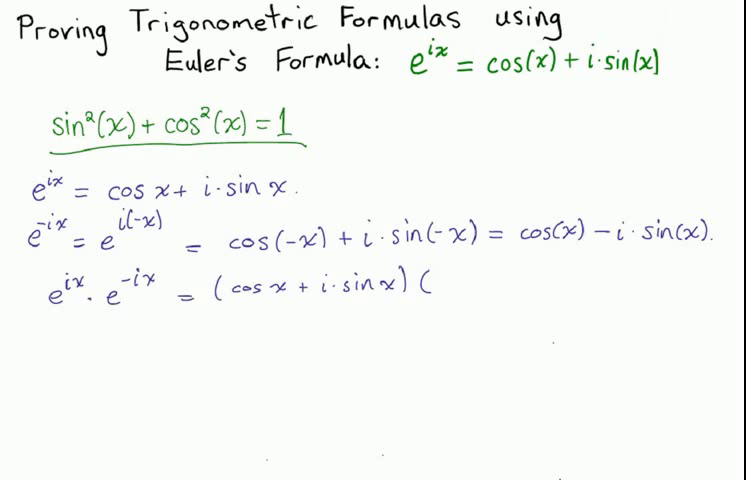 Proving Trigonometric Formulas using
Euler's Formula: e^{ix} = cos(x) + i·sin(x)
sin²(x) + cos²(x) = 1
e^{ix} = cos x + i·sin x.
e^{-ix} = e^{i(-x)} = cos(-x) + i·sin(-x) = cos(x) - i·sin(x).
e^{ix}·e^{-ix} = (cos x + i·sin x)(